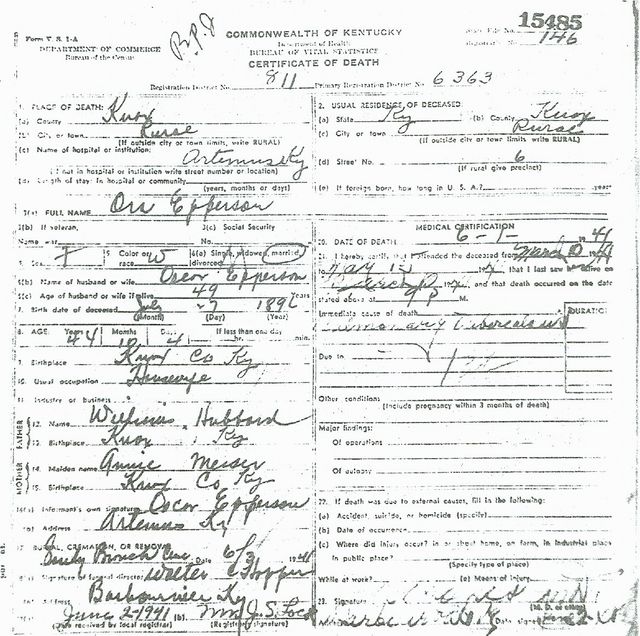 15485
Form V. S. 1-A
COMMONWEALTH OF KENTUCKY
State File No.
DEPARTMENT OF COMMERCE
Department of Health
Registrar's No. 146
Bureau of the Census
BUREAU OF VITAL STATISTICS
CERTIFICATE OF DEATH
Registration District No. 811 Primary Registration District No. 6363
1. PLACE OF DEATH:
(a) County Knox
(b) City or town Rural
(If outside city or town limits, write RURAL)
(c) Name of hospital or institution:
Artemus Ky
(If not in hospital or institution write street number or location)
(d) Length of stay: in hospital or community
(years, months or days)
2. USUAL RESIDENCE OF DECEASED:
(a) State Ky (b) County Knox
(c) City or town Rural
(If outside city or town limits, write RURAL)
(d) Street No. 6
(If rural give precinct)
(e) If foreign born, how long in U. S. A.? years
3(a) FULL NAME Orr Epperson
3(b) If veteran, 3(c) Social Security
Name war No.
5. Sex F 5 Color or race W 6(a) Single, widowed, married, divorced
6(b) Name of husband or wife Oscar Epperson
6(c) Age of husband or wife if alive 49 Years
7. Birth date of deceased July 27 189
(Month) (Day) (Year)
8. AGE: Years 44 Months 10 Days 4 If less than one day
hr. min.
9. Birthplace Knox Co Ky
10. Usual occupation Housewife
11. Industry or business
FATHER
12. Name Hubbard
13. Birthplace Knox Ky
MOTHER
14. Maiden name Annie Messer
15. Birthplace Knox Co Ky
16(a) Informant's own signature Oscar Epperson
(b) Address Artemus Ky
17. BURIAL, CREMATION, OR REMOVAL
Date 6/3 1941
18. Signature of funeral director Walter Hopper
Address Barbourville Ky
June 2-1941 (b) Mrs J. S. Lock
(Date received by local registrar) (Registrar's signature)
MEDICAL CERTIFICATION
20. DATE OF DEATH 6-1- 1941
21. I hereby certify that I attended the deceased from March
, that I last saw h alive on
, and that death occurred on the date
stated above at 9 P M.
Immediate cause of death
DURATION
Pulmonary Tuberculosis
Due to
Other conditions
(Include pregnancy within 3 months of death)
Major findings:
Of operations
Of autopsy
22. If death was due to external causes, fill in the following:
(a) Accident, suicide, or homicide (specify)
(b) Date of occurrence
(c) Where did injury occur? in or about home, on farm, in industrial place
in public place?
(Specify type of place)
While at work? (e) Means of injury
23. Signature
(M. D. or other)